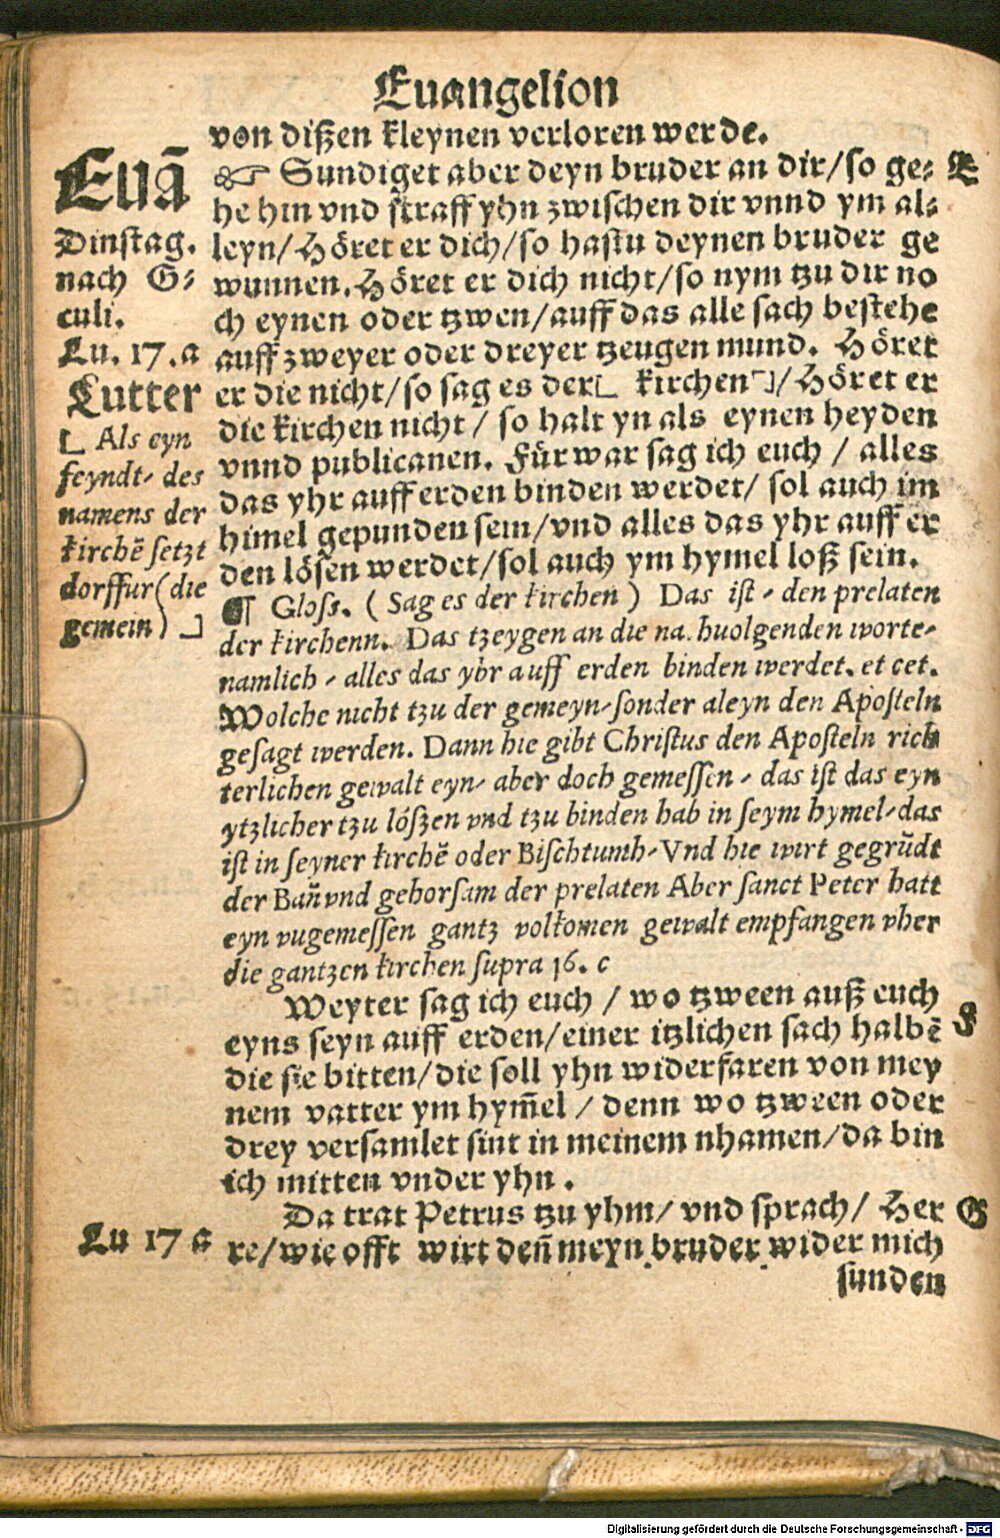 Euangelion
von dißen kleynen verloren werde.
Euā
Dinstag.
nach G⸗
culi.
Lu. 17.a
Lutter
[ Als eyn
feyndt, des
namens der
kirchē setzt
dorffur (die
gemein) ]
☞ Sundiget aber deyn bruder an dir/so ge⸗
E
he hin vnd straff yhn zwischen dir vnnd ym al⸗
leyn/Höret er dich/so hastu deynen bruder ge
wunnen. Höret er dich nicht/so nym tzu dir no
ch eynen oder tzwen/auff das alle sach bestehe
auff zweyer oder dreyer tzeugen mund. Höret
er die nicht/so sag es der[ kirchen]/Höret er
die kirchen nicht/ so halt yn als eynen heyden
vnnd publicanen. Fürwar sag ich euch / alles
das yhr auff erden binden werdet/ sol auch im
himel gepunden sein/vnd alles das yhr auff er
den lösen werdet/sol auch ym hymel loß sein.
¶ Gloss. ( Sag es der kirchen ) Das ist, den prelaten
der kirchenn. Das tzeygen an die na.huolgenden worte,
namlich, alles das yhr auff erden binden werdet. et cet.
Wolche nicht tzu der gemeyn, sonder aleyn den Aposteln
gesagt werden. Dann hie gibt Christus den Aposteln rich
terlichen gewalt eyn, aber doch gemessen, das ist das eyn
ytzlicher tzu lößen vnd tzu binden hab in seym hymel, das
ist in seyner kirchē oder Bischtumb, Vnd hie wirt gegrūdt
der Bañ vnd gehorsam der prelaten Aber sanct Peter hatt
eyn vugemessen gantz volkomen gewalt empfangen vber
die gantzen kirchen supra 16. c
Weyter sag ich euch / wo tzween auß euch
F
eyns seyn auff erden/einer itzlichen sach halbē
die sie bitten/die soll yhn widerfaren von mey
nem vatter ym hym̄el / denn wo tzween oder
drey versamlet sint in meinem nhamen/da bin
ich mitten vnder yhn .
Da trat Petrus tzu yhm/ vnd sprach/ Her
G
Lu 17 a
re/wie offt wirt deñ meyn bruder wider mich
sunden
Digitalisierung gefördert durch die Deutsche Forschungsgemeinschaft - DFG